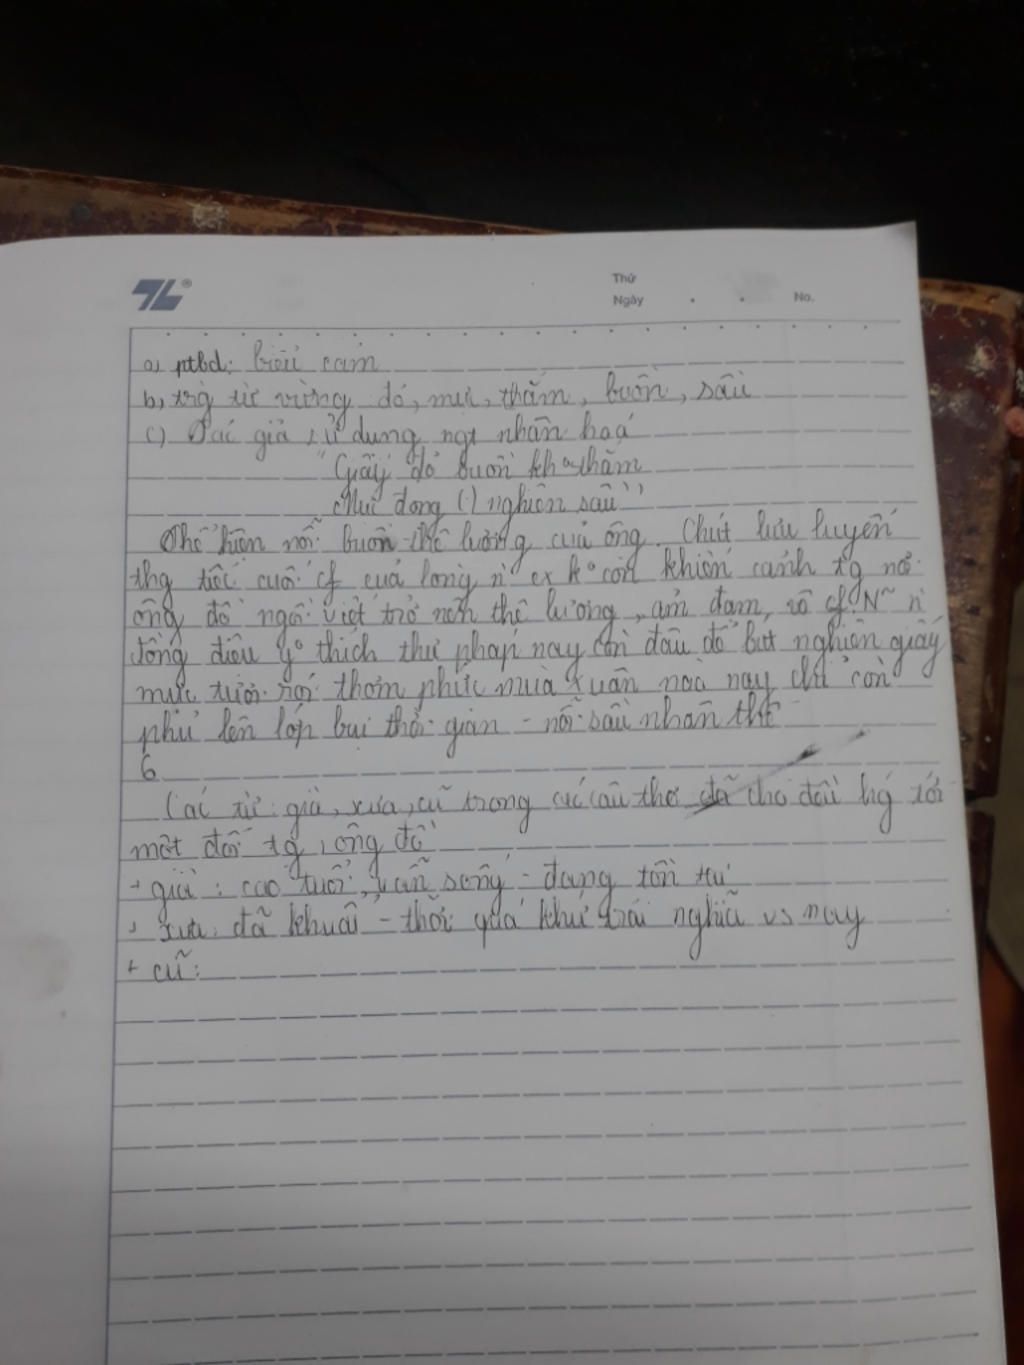 TL®
Thứ
Ngày . . No.
a) ptbđ: biểu cảm
b, trg từ vừng đỏ, mực, thắm, buồn, sầu
c) Tác giả sử dụng ngt nhân hoá
"Giấy đỏ buồn kho thắm
Mực đong (.) nghiên sầu"
Thể hiện nỗi buồn thê lương của ông. Chút lưu luyến
thg tiếc cuối cf của lòng n` ex k° còn khiến cảnh tg nơi
ông đồ ngồi viết trở nên thê lương, ảm đạm, vô cf. N~ n`
dòng điệu y° thích thư pháp nay còn đâu để bút nghiên giấy
mực tươi rói thơm phức mùa xuân nào nay chỉ còn
phủ lên lớp bụi thời gian - nỗi sầu nhân thế
6
Các từ: già, xưa, cũ trong các câu thơ đã cho đều hg tới
một đối tg, ông đồ
+ già: cao tuổi, vẫn sống - đang tồn tại
+ xưa: đã khuất - thời quá khứ trái nghĩa vs nay
+ cũ: